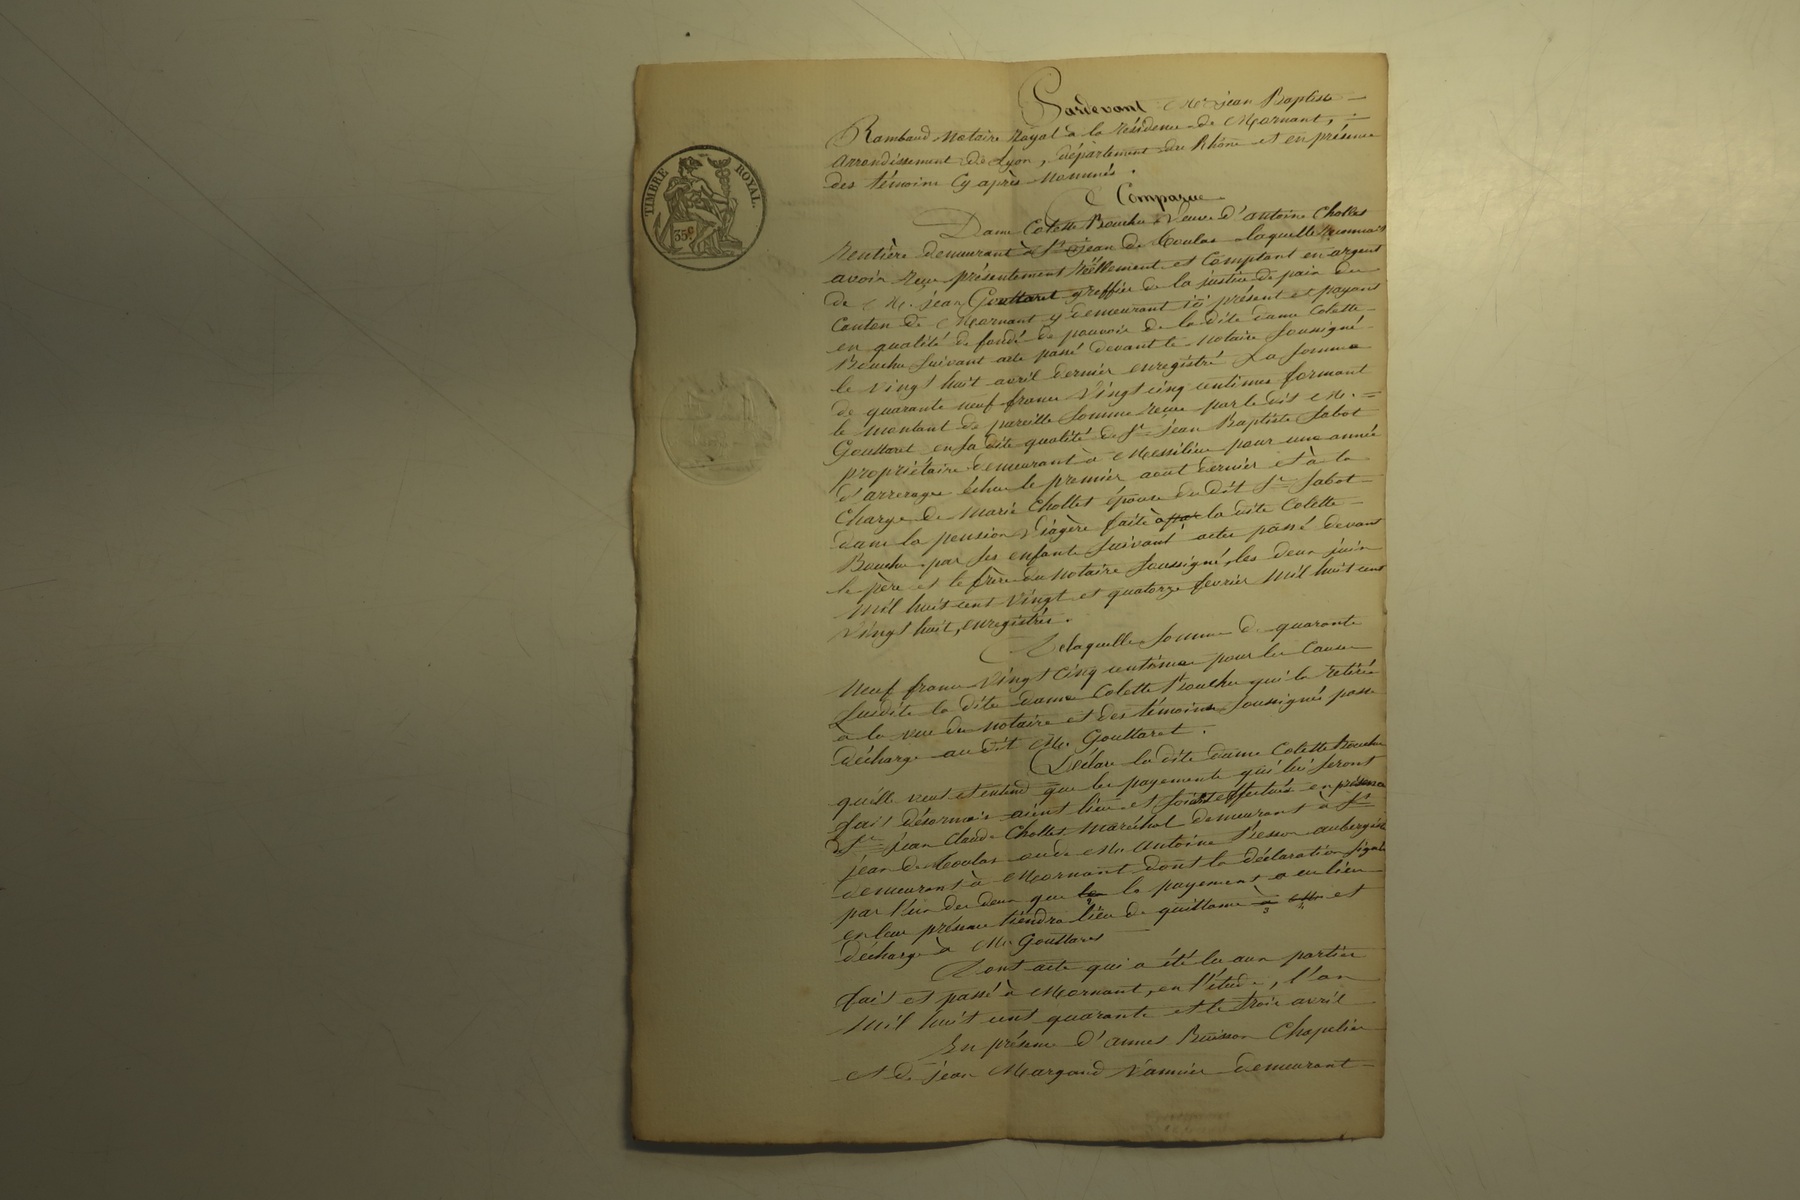 TIMBRE ROYAL.
35c
Pardevant Me jean Baptiste
Rambaud Notaire Royal à la résidence de Mornant,
arrondissement de Lyon, département du Rhône et en présence
des témoins cy après Nommés.
Comparue
Dame Colette Bouchu Veuve d'antoine Chollet
Rentière demeurant à St jean de Toulas laquelle reconnait
avoir reçu présentement réèllement et Comptant en argent
de Me jean Gouttaret greffier de la justice de paix du
Canton de Mornant y demeurant ici présent et payant
en qualité de fondé de pouvoir de la dite dame Colette
Bouchu suivant acte passé devant le Notaire soussigné
le vingt huit avril dernier enregistré La somme
de quarante neuf francs vingt cinq centimes formant
le montant de pareille somme reçue par le dit Me.
Gouttaret en sa dite qualité de Sr jean Baptiste Jabot
propriétaire demeurant à Messilieu pour une année
d'arrerages échue le premier aout dernier et à la
Charge de Marie Chollet épouse du dit Sr Jabot
dans la pension viagère faite à par la dite Colette
Bouchu par ses enfants suivant actes passé devant
le père et le frère du Notaire soussigné, les deux juin
mil huit cent vingt et quatorze fevrier mil huit cent
vingt huit, enregistrés.
De laquelle somme de quarante
Neuf francs vingt cinq centimes pour les Causes
susdite la dite dame Colette Bouchu qui l'a retirée
à la vue du notaire et des témoins soussignés passe
décharge au dit Me Gouttaret.
Déclare la dite dame Colette Bouchu
qu'elle veut et entend que les payements qui lui seront
fait désormais aient lieu et soient effectués en présence
de Sr jean Claude Chollet Maréchal demeurant à St
jean de Toulas ou de Me Antoine Besson aubergiste
demeurant à Mornant dont la déclaration signée
par l'un des deux que le le payement a eu lieu
en leur présence tiendra lieu de quittance à et
décharge à Me Gouttaret
Dont acte qui a été lu aux parties
fait et passé à Mornant, en l'étude, l'an
mil huit cent quarante et le trois avril
En présence d'annes Buisson Chapelier
et de jean Margand Vannier demeurant